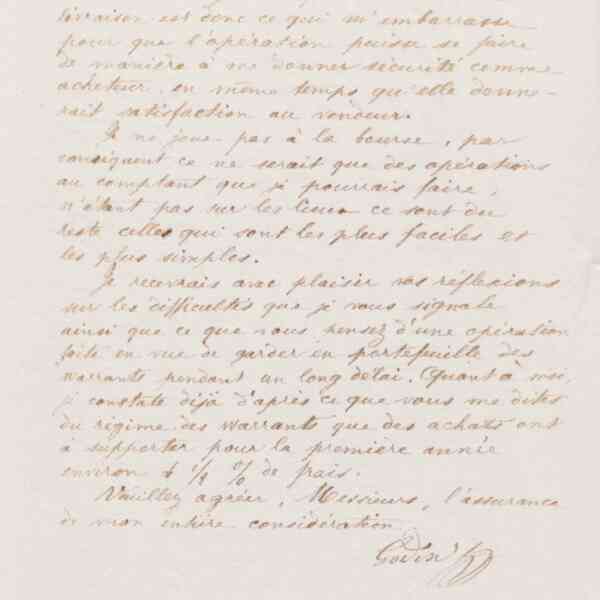 livraison est donc ce qui m'embarrasse
pour que l'opération puisse se faire
de manière à me donner sécurité comme
acheteur en même temps qu'elle donne-
rait satisfaction au vendeur.
Je ne joue pas à la bourse, par
conséquent ce ne serait que des opérations
au comptant que je pourrais faire,
n'étant pas sur les lieux ce sont du
reste celles qui sont les plus faciles et
les plus simples.
Je recevrais avec plaisir vos réflexions
sur les difficultés que je vous signale
ainsi que ce que vous pensez d'une opération
faite en vue de garder en portefeuille des
warrants pendant un long délai. Quant à moi,
je constate déjà d'après ce que vous me dites
du régime des warrants que des achats ont
à supporter pour la première année
environ 6 1/2 % de frais.
Veuillez agréer, Messieurs, l'assurance
de mon entière considération
Godin